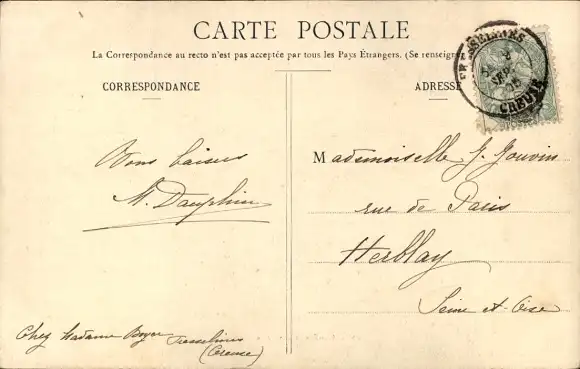 CARTE POSTALE
La Correspondance au recto n'est pas acceptée par tous les Pays Étrangers. (Se renseigne
CORRESPONDANCE
ADRESSE
FRESSELINES
2
SEPT
05
CREUSE
POSTES
Bons baisers
M. Dauphin
Mademoiselle J. Jouvin
rue de Paris
Herblay
Seine-et-Oise
Chez Madame Boyer Fresselines
(Creuse)